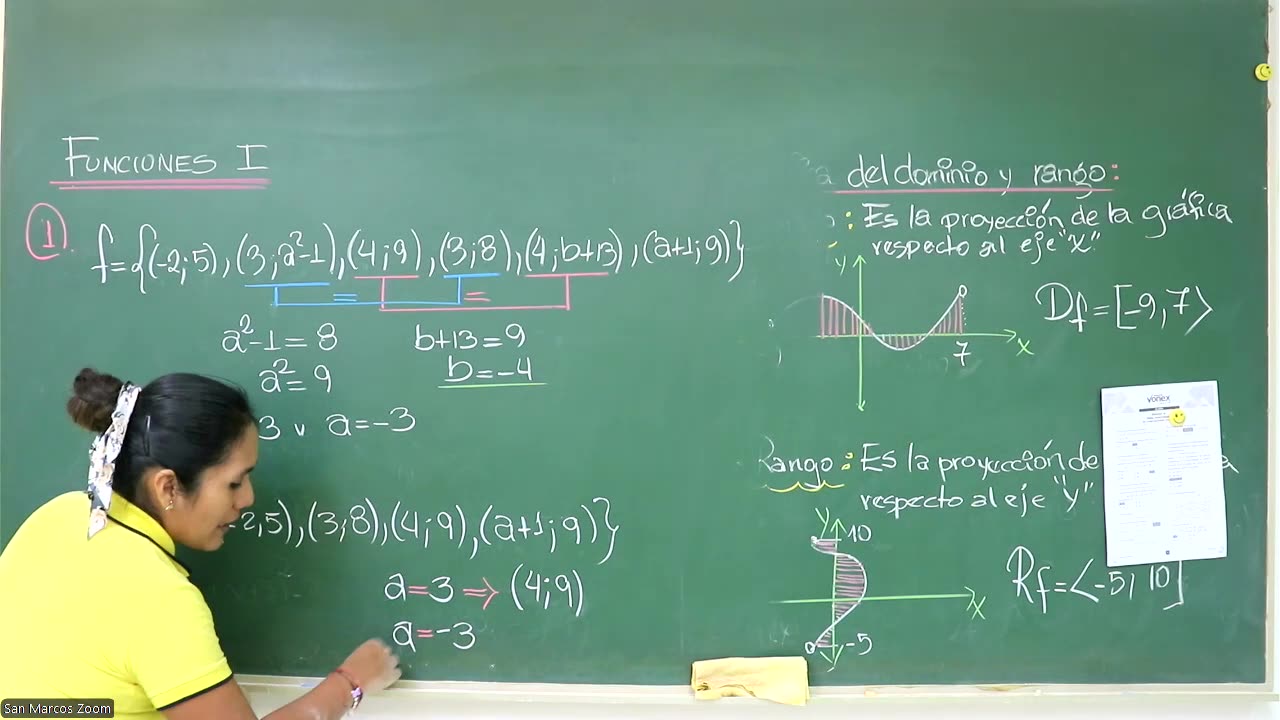 FUNCIONES I
1. f={(-2;5),(3;a²-1),(4;9),(3;8),(4;b+13),(a+1;9)}
= =
a²-1=8 b+13=9
a²=9 b=-4
3 v a=-3
2,5),(3;8),(4;9),(a+1;9)}
a=3 ⇒ (4;9)
a=-3
a del dominio y rango:
: Es la proyección de la gráfica
respecto al eje "X".
y
Df=[-9,7⟩
7 X
Rango: Es la proyección de a
respecto al eje "Y"
Y 10
Rf=⟨-5, 10]
X
-5
vonex
San Marcos Zoom